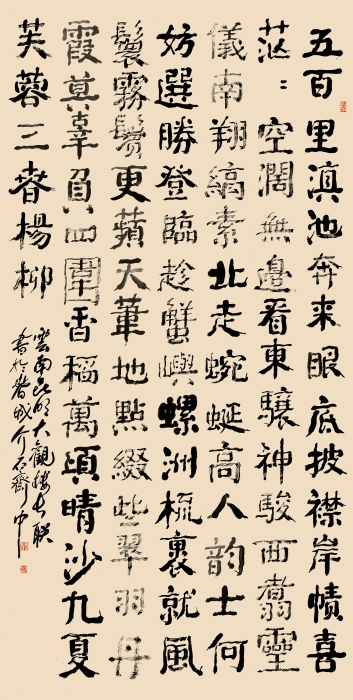 五百里滇池奔来眼底披襟岸幘喜
茫〻空濶無邊看東驤神駿西翥靈
儀南翔縞素北走蜿蜒高人韵士何
妨選勝登臨趁蟹嶼螺洲梳裹就風
鬟霧鬢更蘋天葦地點綴些翠羽丹
霞莫辜負四圍香稻萬頃晴沙九夏
芙蓉三春楊柳
雲南昆明大觀樓長联
書於城介石齋